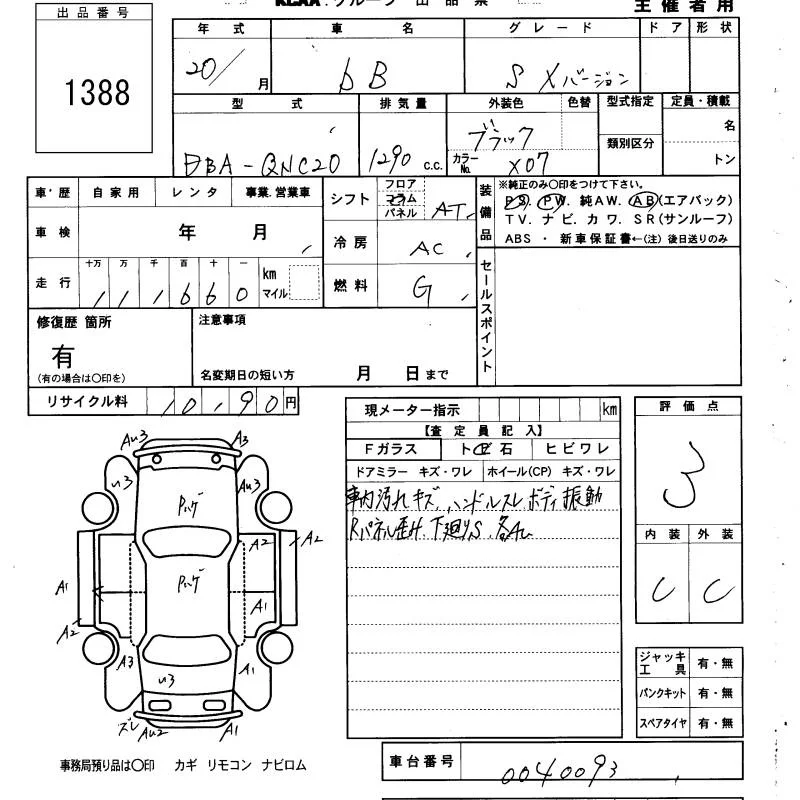 出品番号
1388
KCAA.グループ 出品票
主催者用
年式 車名 グレード ドア 形状
20/ 月 bB S Xバージョン
型式 排気量 外装色 色替 型式指定 定員・積載
DBA-QNC20 1290 c.c. ブラック 類別区分 名
カラーNo. X07 トン
車・歴 自家用 レンタ 事業.営業車
車検 年 月
走行 十万 万 千 百 十 一
111660 km マイル
シフト フロア コラム パネル AT
冷房 AC
燃料 G
装備品
※純正のみ〇印をつけて下さい。
PS. PW. 純AW. AB(エアバック)
TV. ナビ. カワ. SR(サンルーフ)
ABS ・ 新車保証書←(注) 後日送りのみ
セールスポイント
修復歴 箇所
有
(有の場合は〇印を)
注意事項
名変期日の短い方 月 日まで
リサイクル料 10,90 円
現メーター指示 km
【査定員記入】
Fガラス トビ石 ヒビワレ
ドアミラー キズ・ワレ ホイール(CP) キズ・ワレ
車内汚れキズ ハンドルスレ ボディ振動
Rパネル歪み. 下廻りS. 各A
評価点
3
内装 外装
C C
ジャッキ工具 有・無
パンクキット 有・無
スペアタイヤ 有・無
AU3 A3
U3 Pハゲ AU3
A2 A2
Pハゲ
A1 A1
A2
A3 U3 A1
ズレ AU2 A1
事務局預り品は〇印 カギ リモコン ナビロム
車台番号 0040093